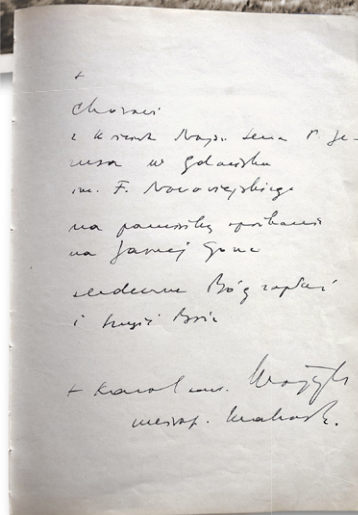 +
Chórowi
z Kościoła Najśw. Serca P. Je-
zusa w Gdańsku
im. F. Nowowiejskiego
na pamiątkę spotkania
na Jasnej Górze
serdeczne Bóg zapłać
i Boże
+ Karol Wojtyła